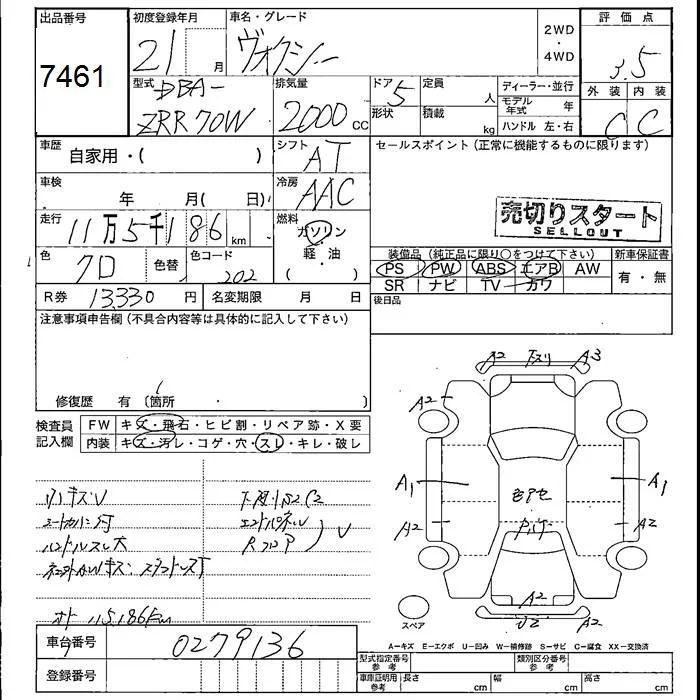 出品番号
7461
初度登録年月
21 月
車名・グレード
ヴォクシー
2WD
・
4WD
評価点
3.5
外装 内装
C C
型式
DBA-
ZRR70W
排気量
2000 CC
ドア 5
形状
定員 人
積載 kg
ディーラー・並行
モデル年式 年
ハンドル 左・右
車歴 自家用・( )
シフト AT
セールスポイント(正常に機能するものに限ります)
車検 年 月( 日)
冷房 AAC
売切りスタート
SELLOUT
走行 11万5千186 km
燃料
ガソリン
軽・油
( )
色 クロ 色替
色コード 202
装備品(純正品に限り○をつけて下さい)
新車保証書
PS PW ABS エアB AW
SR ナビ TV カワ
有・無
後日品
R券 13330 円
名変期限 月 日
注意事項申告欄(不具合内容等は具体的に記入して下さい)
修復歴 有(箇所 )
検査員
記入欄
FW キズ・飛石・ヒビ割・リペア跡・X要
内装 キズ・汚レ・コゲ・穴・スレ・キレ・破レ
内キズV
シートカバー付
ハンドルスレ大
下廻りS2C2
エンドパネルU
RフロアP
V
オド 115,186km
A2 下スリ A3
A2
A1
A1
A2
A2
A2
U2 A2
スペア
A-キズ E-エクボ U-凹み W-補修跡 S-サビ C-腐食 XX-交換済
車台番号 0279136
登録番号
型式指定番号
参考
類別区分番号
参考
車庫証明用
参考
長さ cm
幅 cm
高さ cm